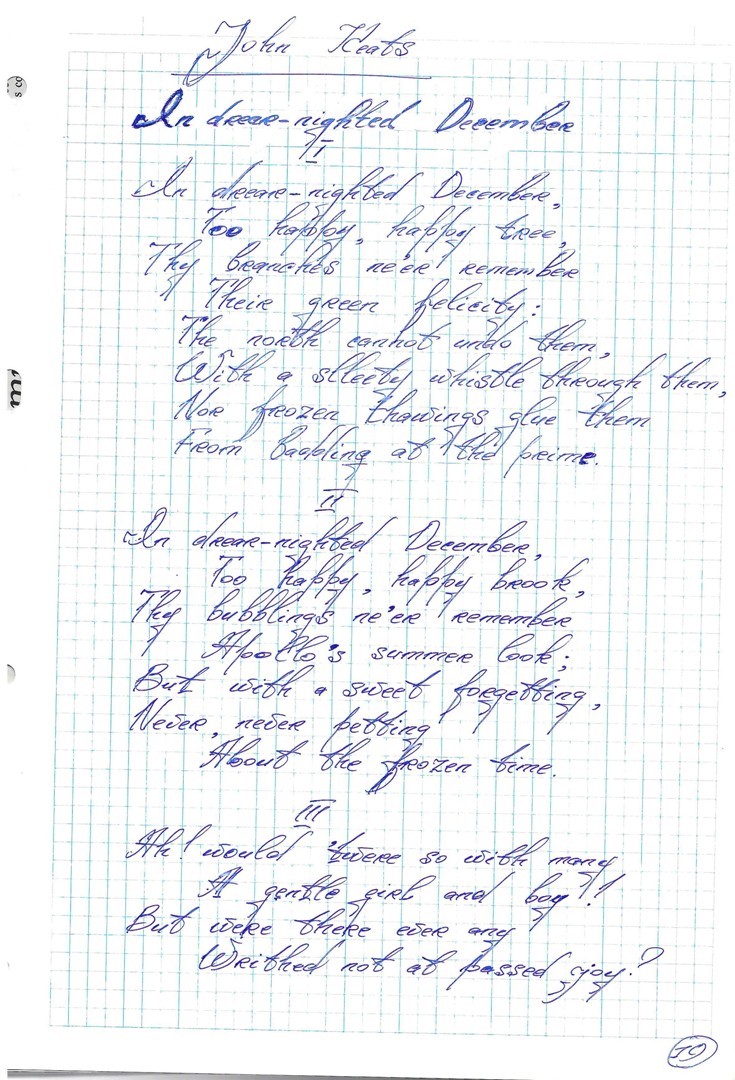 John Keats
In drear-nighted December
I
In drear-nighted December,
Too happy, happy tree,
Thy branches ne'er remember
Their green felicity:
The north cannot undo them,
With a slleety whistle through them,
Nor frozen thawings glue them
From baddling at the prime.
II
In drear-nighted December,
Too happy, happy brook,
Thy bubblings ne'er remember
Apollo's summer look;
But with a sweet forgetting,
Never, never petting
About the frozen time.
III
Ah! would 'twere so with many
A gentle girl and boy!!
But were there ever any
Writhed not at passed joy?
10